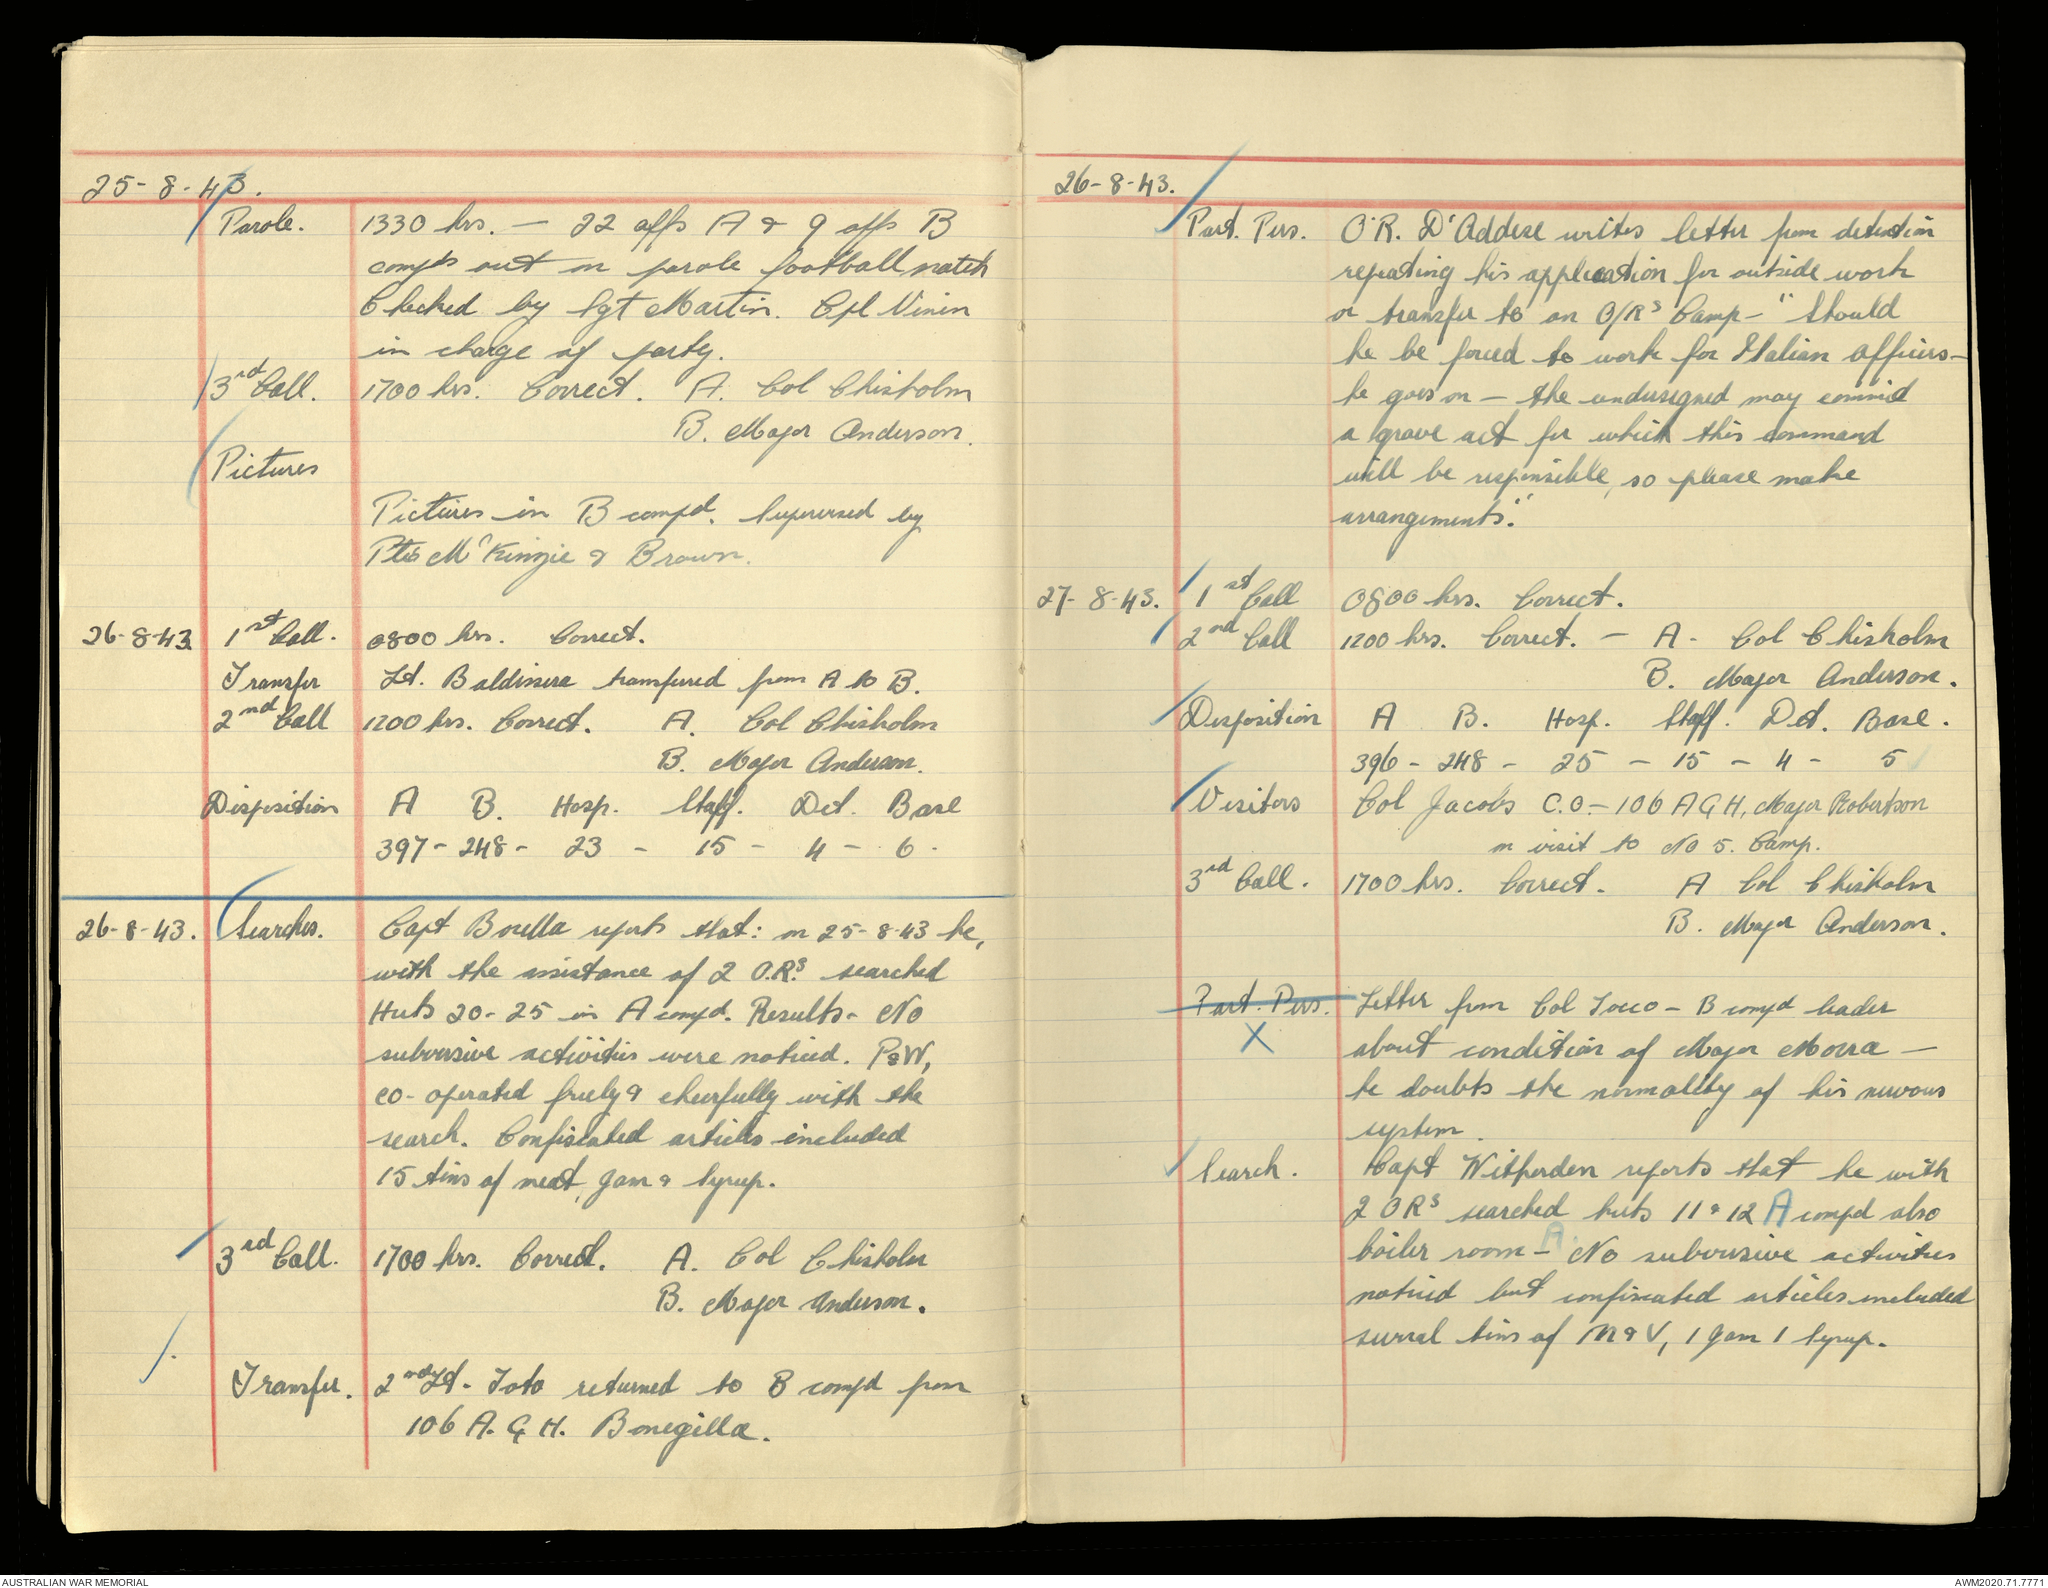 25-8-43.
Parole. 1330 hrs. — 22 offs A & 9 offs B
compds out on parole football match
Checked by Sgt Martin. Cpl Vinin
in charge of party.
3rd Call. 1700 hrs. Correct. A. Col Chisholm
B. Major Anderson.
Pictures
Pictures in B compd. Supervised by
Ptes McKinzie & Brown.
26-8-43 1st Call. 0800 hrs. Correct.
Transfer Lt. Baldissera transferred from A to B.
2nd Call 1200 hrs. Correct. A. Col Chisholm
B. Major Anderson.
Disposition A B. Hosp. Staff. Det. Base
397 - 248 - 23 - 15 - 4 - 6.
26-8-43. Searches. Capt Borella reports that: on 25-8-43 he,
with the assistance of 2 O.Rs. searched
Huts 20-25 in A compd. Results- No
subversive activities were noticed. PsW,
co-operated freely & cheerfully with the
search. Confiscated articles included
15 tins of meat, jam & syrup.
3rd Call. 1700 hrs. Correct. A. Col Chisholm
B. Major Anderson.
Transfer. 2nd Lt. Toto returned to B compd from
106 A.G.H. Bonegilla.
26-8-43.
Part. Pers. O'R. D'Addese writes letter from detention
repeating his application for outside work
or transfer to an O/Rs Camp- "Should
he be forced to work for Italian Officers-
he goes on - the undersigned may commit
a grave act for which this command
will be responsible, so please make
arrangements."
27-8-43. 1st Call 0800 hrs. Correct.
2nd Call 1200 hrs. Correct. - A. Col Chisholm
B. Major Anderson.
Disposition A B. Hosp. Staff. Det. Base.
396 - 248 - 25 - 15 - 4 - 5
Visitors Col Jacobs C.O.- 106 AGH, Major Robertson
on visit to No 5. Camp.
3rd Call. 1700 hrs. Correct. A Col Chisholm
B. Major Anderson.
Part. Pers. Letter from Col Tocco - B compd leader
X about condition of Major Morra -
he doubts the normality of his nervous
system.
Search. Capt Witherden reports that he with
2 ORs searched huts 11 & 12 A compd also
boiler room - A. No subversive activities
noticed but confiscated articles included
several tins of M & V, 1 jam 1 syrup.
AUSTRALIAN WAR MEMORIAL
AWM2020.71.7771